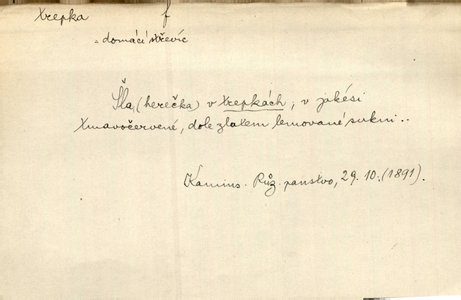 trepka f
= domácí střevíc
Šla (herečka) v trepkách, v jakési
tmavočervené, dole zlatem lemované sukni..
Kamins. Růz. panstvo, 29. 10. (1891).